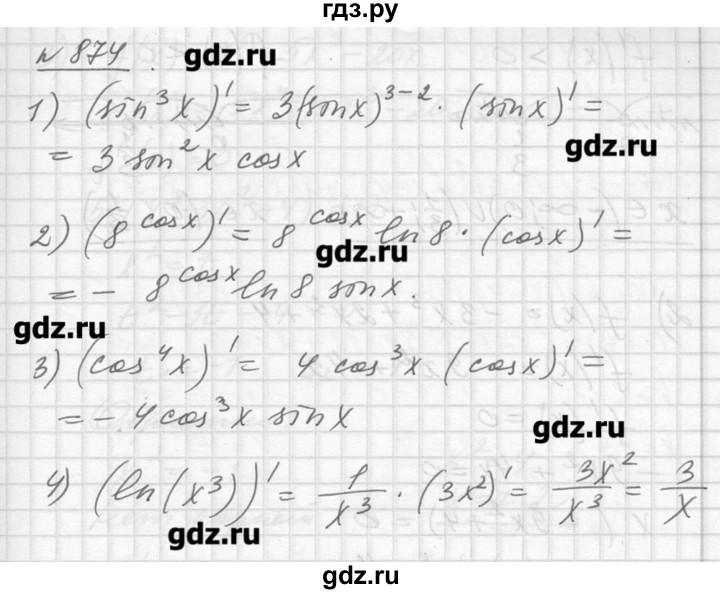 гдз.ру
№ 874. gdz.ru
1) (sin³x)' = 3(sinx)³⁻² · (sinx)' =
gdz.ru
= 3 sin²x cosx
2) (8^cosx)' = 8^cosx ln8 · (cosx)' =
gdz.ru
= - 8^cosx ln8 sinx.
gdz.ru
3) (cos⁴x)' = 4cos³x (cosx)' =
= - 4cos³x sinx
gdz.ru
4) (ln(x³))' = 1/x³ · (3x²)' = 3x²/x³ = 3/x
gdz.ru
gdz.ru